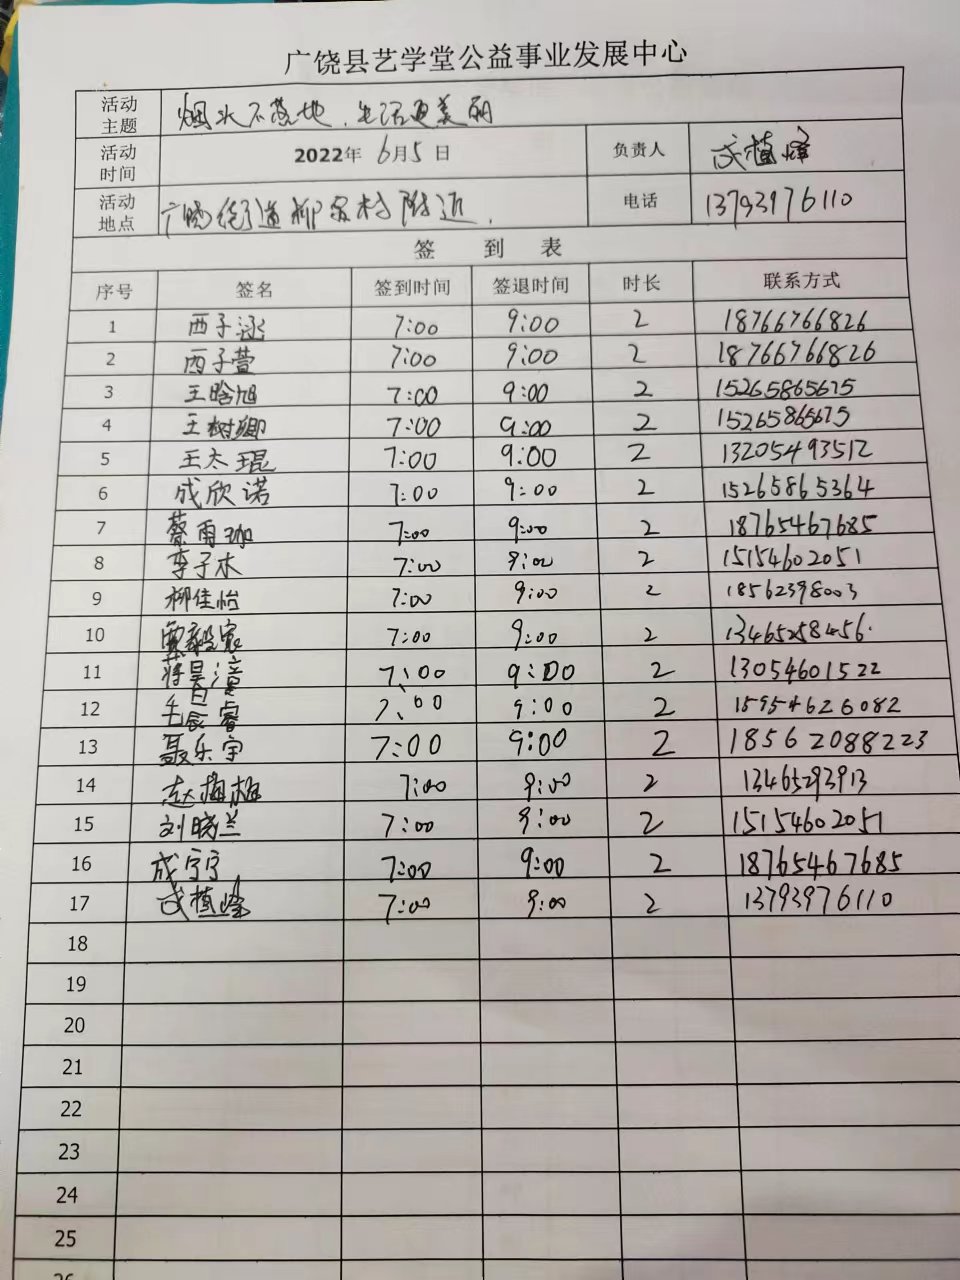 广饶县艺学堂公益事业发展中心
活动主题 烟头不落地、生活更美丽
活动时间 2022年6月5日 负责人 成植峰
活动地点 广饶街道柳家村附近. 电话 13793976110
签 到 表
序号 签名 签到时间 签退时间 时长 联系方式
1 西子涵 7:00 9:00 2 18766766826
2 西子萱 7:00 9:00 2 18766766826
3 王晗旭 7:00 9:00 2 15265865675
4 王树卿 7:00 9:00 2 15265865675
5 王太琨 7:00 9:00 2 13205493512
6 成欣诺 7:00 9:00 2 15265865364
7 蔡雨珈 7:00 9:00 2 18765467685
8 李子木 7:00 9:00 2 15154602051
9 柳佳怡 7:00 9:00 2 18562398003
10 7:00 9:00 2 13465258456.
11 蒋昊 7:00 9:00 2 13054601522
12 7:00 9:00 2 15954626082
13 聂乐宇 7:00 9:00 2 18562088223
14 赵梅梅 7:00 9:00 2 13465293913
15 刘晓兰 7:00 9:00 2 15154602051
16 成宁宁 7:00 9:00 2 18765467685
17 成植峰 7:00 9:00 2 13793976110
18
19
20
21
22
23
24
25
26